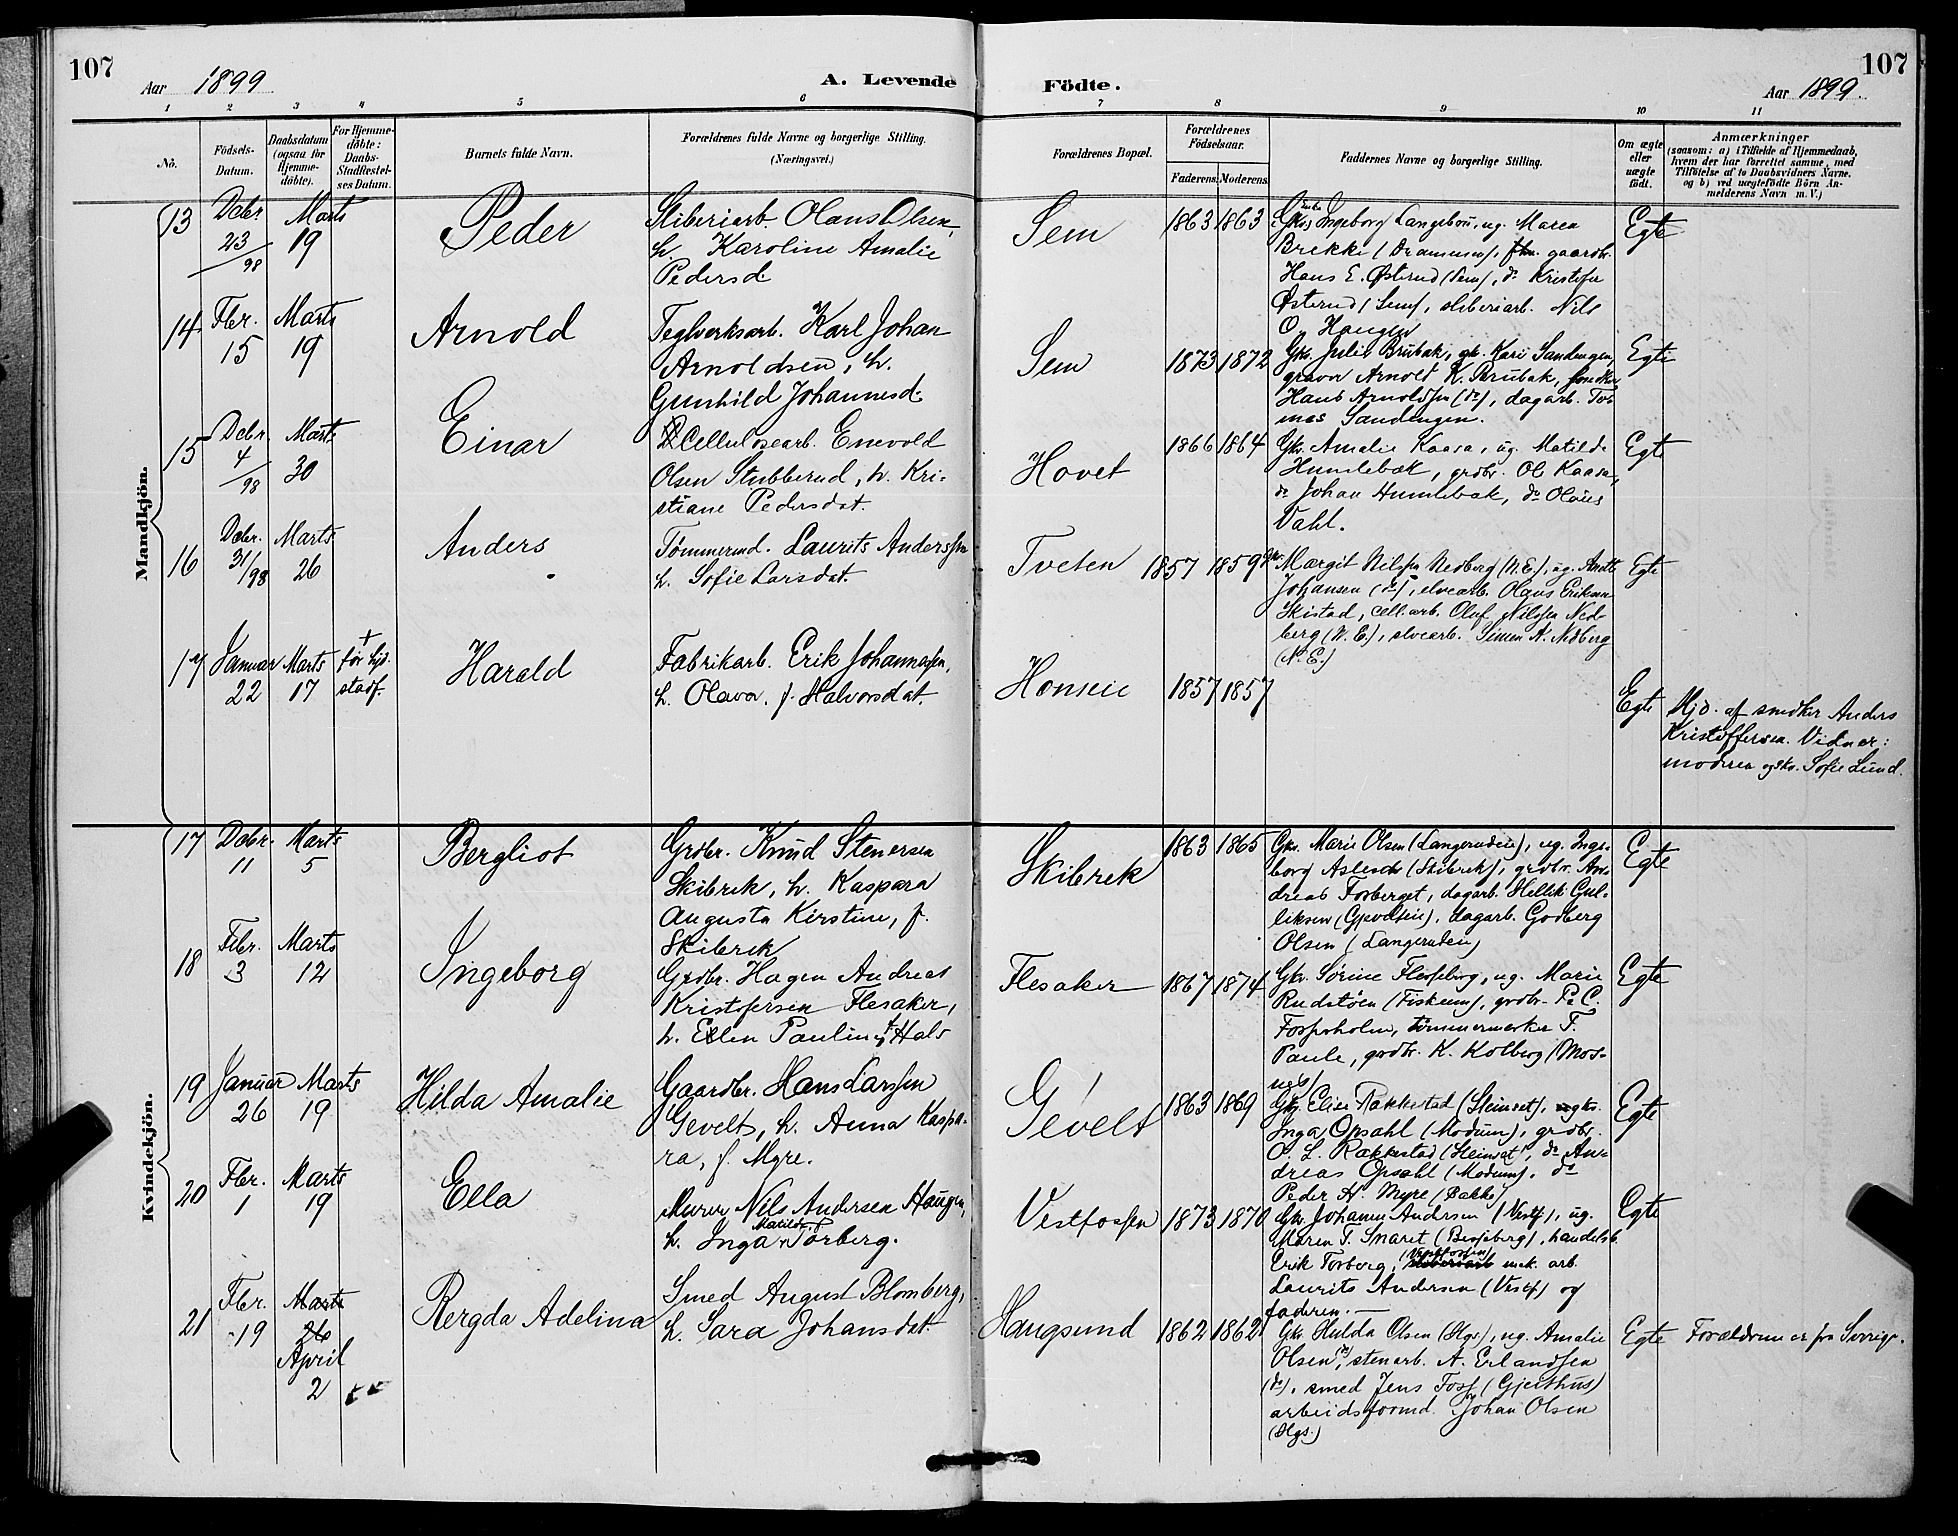 107
Aar 1899
A. Levende Födte.
Aar 1899.
107
1 2 3 4 5 6 7 8 9 10 11
No.
Födsels-
Datum.
Daabsdatum
(ogsaa for
Hjemme-
döbte).
For Hjemme-
döbte:
Daabs-
Stadfæstel-
ses Datum.
Barnets fulde Navn.
Forældrenes fulde Navne og borgerlige Stilling.
(Næringsvei.)
Forældrenes Bopæl.
Forældrenes
Födselsaar.
Faderens. Moderens.
Faddernes Navne og borgerlige Stilling.
Om ægte
eller
uægte
födt.
Anmærkninger
(saasom: a) i Tilfælde af Hjemmedaab,
hvem der har forrettet samme, med
Tilföielse af to Daabsvidners Navne,
og b) ved uægtefödte Börn An-
melderens Navn m. V.)
Mandkjön.
13
Decbr
23
/98
Marts
19
Peder
Sliberiarb. Olaus Olsen,
h. Karoline Amalie
Pedersd.
Sem
1863 1863
Ingeborg Langebru, ug. Maren
Brekke (Drammen), gaardbr.
Hans E. Østerud (Sem), do Kristofer
Østerud (Sem), sliberiarb. Nils
O. Haugen
Egte
14
Fbr.
15
Marts
19
Arnold
Teglverksarb. Karl Johan
Arnoldsen, h.
Gunhild Johannesd.
Sem
1873 1872
Gks. Julie Brubak, gk. Kari Sandengen,
graver Arnold K. Brubak, snedker
Hans Arnoldsen (do), dagarb. Tor-
mas Sandengen.
Egte
15
Decbr.
4
/98
Marts
30
Einar
Cellulosearb. Enevold
Olsen Stubberud, h. Kri-
stiane Pedersdat.
Hovet
1866 1864
Gks. Amalie Kaasa, ug. Matilde
Humlebæk, grdbr. Ole Kaasa,
do Johan Humlebæk, do Olaus
Dahl.
Egte
16
Decbr.
31/98
Marts
26
Anders
Tømmermd. Laurits Anderssen
h. Sofie Larsdat.
Tveten
1857 1859
Gk. Margit Nilssen Nedberg (N.E.), ug. Anette
Johansen (do), elvearb. Olaus Eriksen
Skistad, cell.arb. Oluf Nilssen Ned-
berg (N.E.), elvearb. Simen A. Nedberg
(N.E.)
Egte
17
Januar
22
Marts
17
+
før hjd.
stadf.
Harald
Fabrikarb. Erik Johannessen,
h. Olava, f. Halvorsdat.
Honseie
1857 1857
Egte
Hjd. af snedker Anders
Kristoffersen. Vidner:
moderen og gks. Sofie Lund.
Kvindekjön.
17
Decbr.
11
Marts
5
Bergliot
Grdbr. Knud Stenersen
Skibrek, h. Kaspara
Augusta Kirstine, f.
Skibrek
Skibrek
1863 1865
Gks. Marie Olsen (Langerudeie), ug. Inge-
borg Aslesen (Skibrek), grdbr. An-
dreas Fosberget, dagarb. Hellik Gul-
liksen, dagarb. Godberg
Olsen (Langerudeie)
Egte
18
Febr.
3
Marts
12
Ingeborg
Grdbr. Hagen Andreas
Kristofersen Flesaker,
h. Ellen Pauline f. Hals
Flesaker
1867 1874
Gk. Sørine Flesseberg, ug. Marie
Rudstøen (Fiskum), grdbr. P. C.
Fossesholm, tømmermerker T.
Paule, grdbr. K. Kolberg (Mos-
Egte
19
Januar
26
Marts
19
Hilda Amalie
Gaardbr. Hans Larssen
Gevelt, h. Anna Kaspa-
ra, f. Myre.
Gevelt
1863 1869
Gk. Elise Rakkestad (Steinset), gks.
Inga Opsahl (Modum), grdbr.
O. L. Rakkestad (Steinset), do An-
dreas Opsahl (Modum), do
Peder H. Myre (Bakke)
Egte
20
Fbr.
1
Marts
19
Ella
Murer Nils Andersen Haugen,
h. Inga Matilde f. Torberg.
Vestfossen
1873 1870
Gk. Johanne Andersen (Vestf), ug.
Maren T. Snaret, handelsb.
Erik Torberg, (Vestfossen) mek. arb.
Laurits Andersen (Vestf) og
faderen. —
Egte
21
Fbr.
19
Marts
26
April
2
Bergda Adelina
Smed August Blomberg,
h. Sara Johansdat.
Haugsund
1862 1862
Gks Hulda Olsen (Hgs), ug. Amalie
Olsen (do), stenarb. A. Erlandsen
(do), smed Jens Foss (Gjeithus)
arbeidsformd. Johan Olsen
(Hgs.)
Egte
Forældrene er fra Sverige.